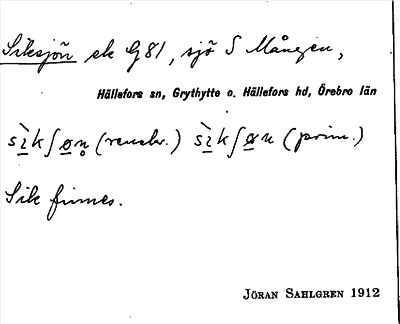 Siksjön ek G 81, sjö S Mången,
Hällefors sn, Grythytte o. Hällefors hd, Örebro län
sìkʃøn̥ (renskr.) sìkʃøn (prim.)
Sik finnes.
JÖRAN SAHLGREN 1912